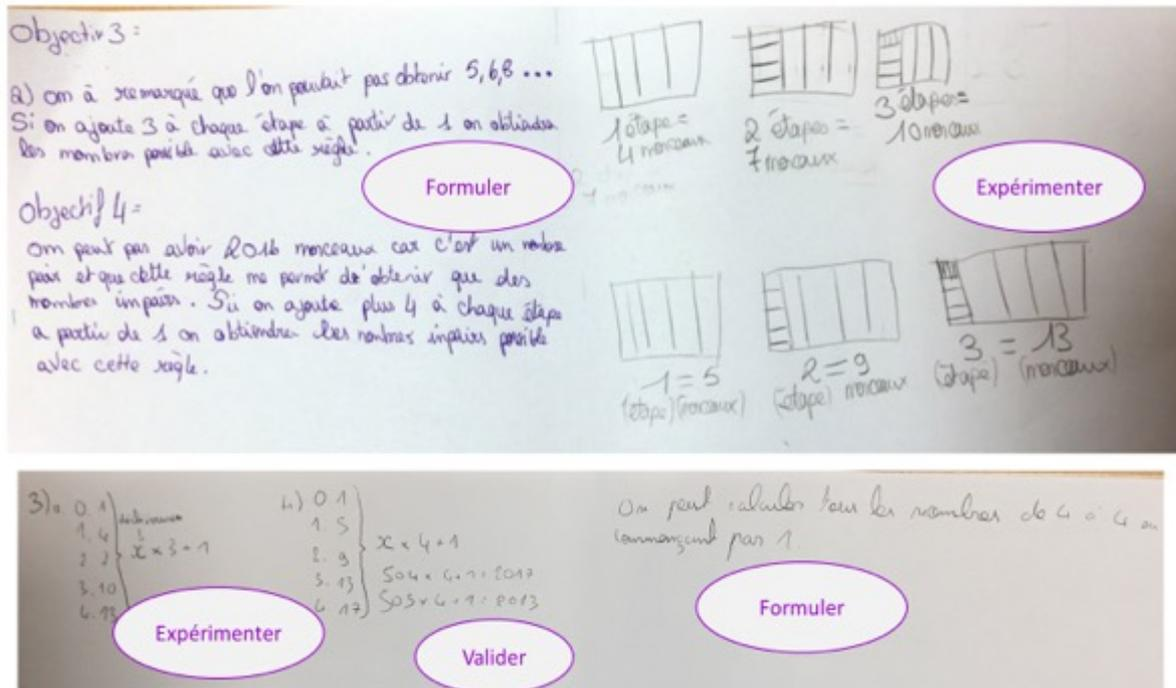 Objectif 3 =
a) on à remarqué que l'on pouvait pas obtenir 5,6,8 ...
Si on ajoute 3 à chaque étape à partir de 1 on obtiendra
les nombres possible avec cette règle.
Formuler
Objectif 4 =
on peut pas avoir 2016 morceaux car c'est un nombre
pair et que cette règle me permet d'obtenir que des
nombres impairs. Si on ajoute plus 4 à chaque étape
a partir de 1 on obtiendra les nombres impairs possible
avec cette règle.
1 étape =
4 morceaux
2 étapes =
7 morceaux
3 étapes =
10 morceaux
Expérimenter
1 = 5
(étape) (morceaux)
2 = 9
(étape) morceaux
3 = 13
(étape) (morceaux)
3)
0. 1
1. 4
2. 7
3. 10
4. 13
x × 3 + 1
Expérimenter
4) 0 1
1. 5
2. 9
3. 13
4. 17
x × 4 + 1
504 × 4 + 1 = 2017
503 × 4 + 1 = 2013
Valider
On peut calculer tous les nombres de 4 à 4 en
commençant par 1.
Formuler